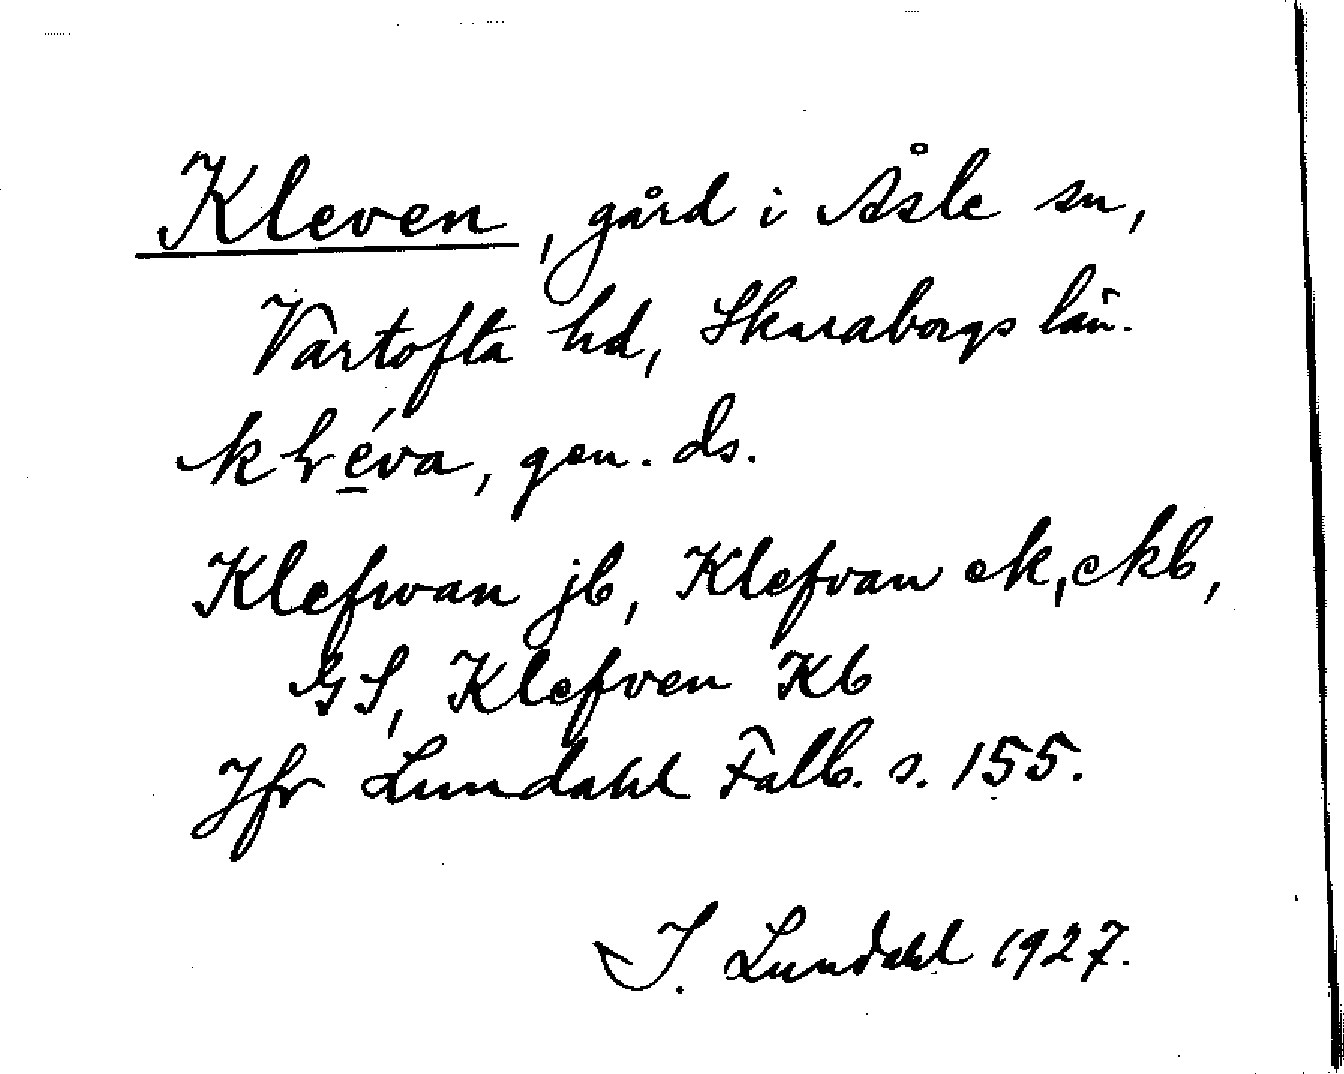 Kleven, gård i Åsle sn,
Vartofta hd, Skaraborgs län.
klé̲va, gen. ds.
Klefwan jb, Klefvan ek, ekb,
GS, Klefven Kb
Jfr Lundahl Falb. s. 155.
I. Lundahl 1927.